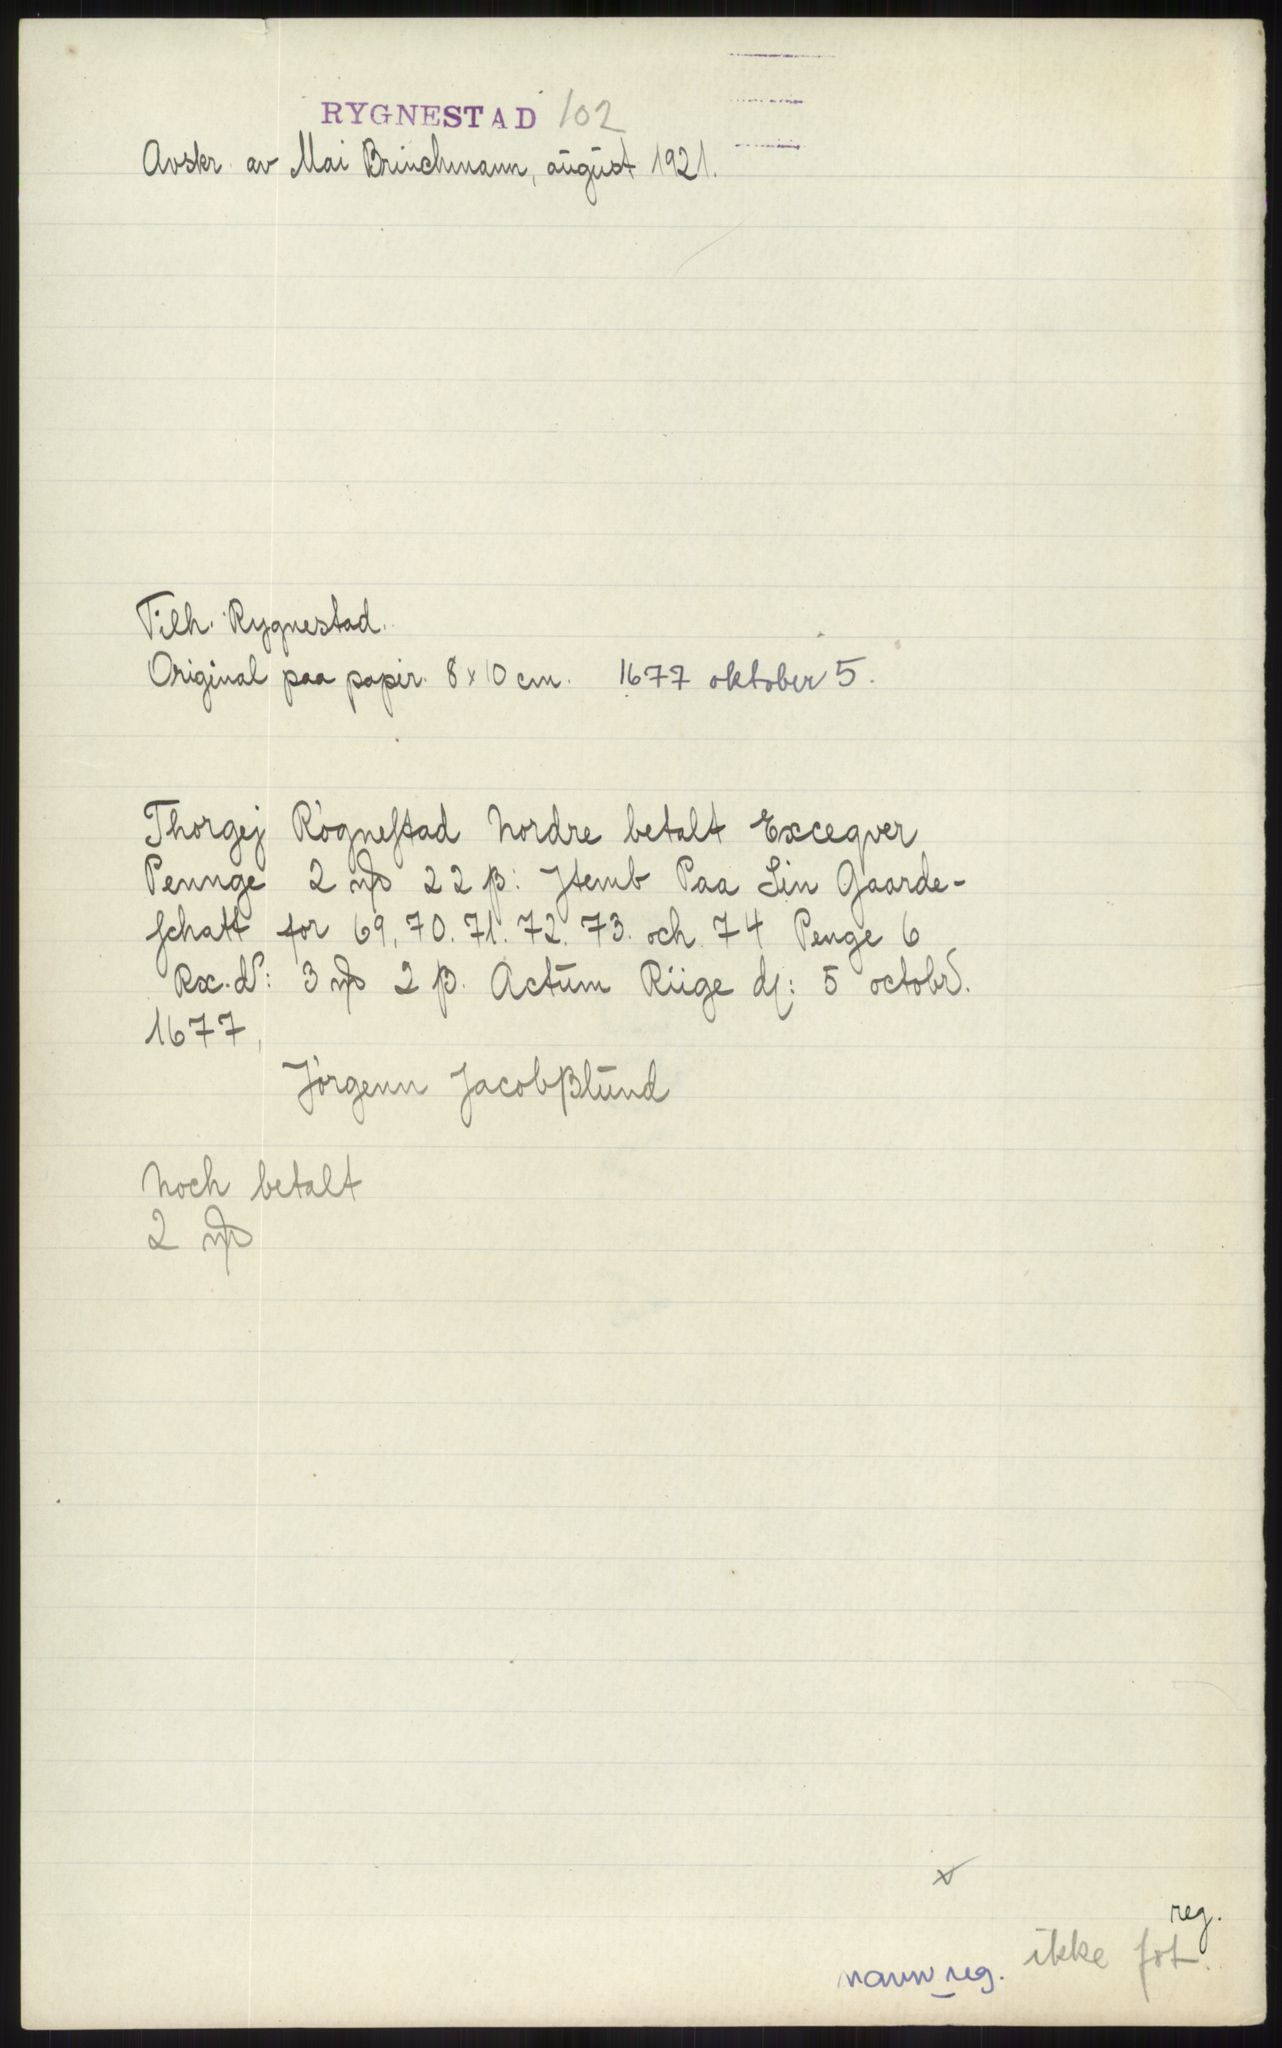 RYGNESTAD 102
Avskr. av Mai Brinchmann, august 1921.
Tilh. Rygnestad.
Original paa papir. 8 x 10 cm. 1677 oktober 5.
Thorgej Rögneſtad Nordre betalt Execqver
Pennge 2 mʒ 22 ß: Jtemb Paa Sin Gaarde-
schatt for 69, 70. 71. 72. 73. och 74 Penge 6
Rx.dr: 3 mʒ 2 ß. Actum Rüge dʃ: 5 octobr.
1677,
Jörgenn Jacobßlund
Noch betalt
2 mʒ
reg.
navn_reg. ikke fot.